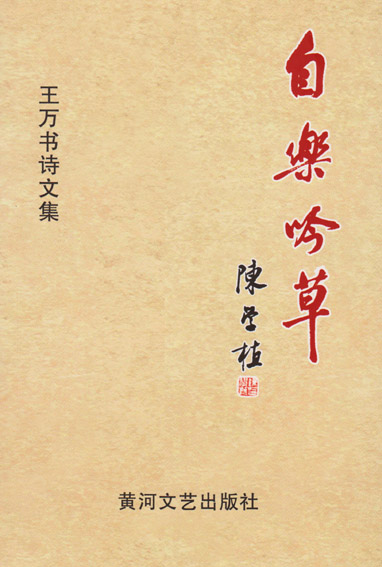 自樂吟草
陳學植
王万书诗文集
黄河文艺出版社